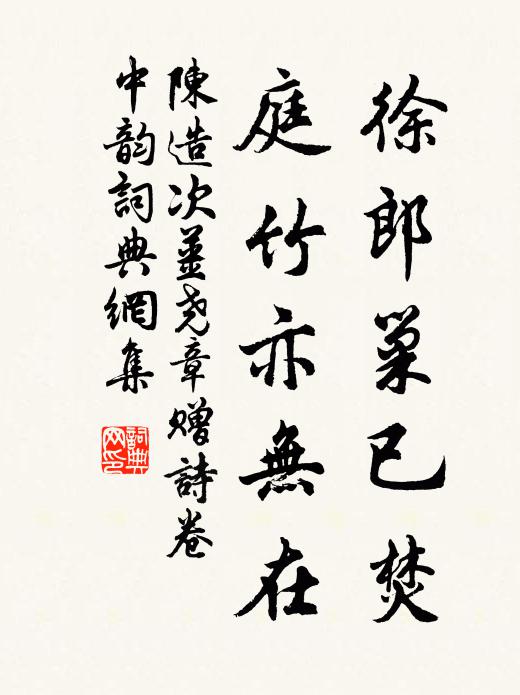 徐郎巢已焚
庭竹亦無在
陳造次姜堯章贈詩卷
中韵詞典網集
詞典
网印